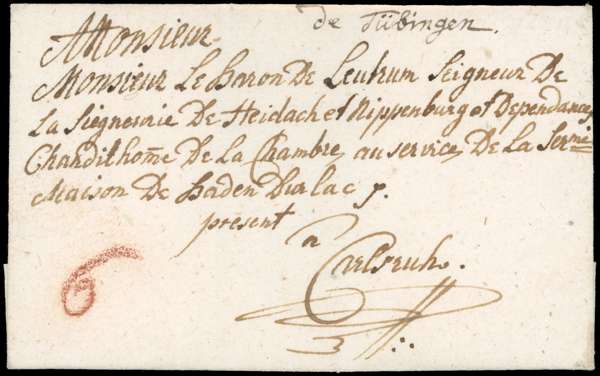 de Tübingen.
A Monsieur
Monsieur Le Baron De Leutrum Seigneur De
La Siegneurie De Heidach et Nippenburg et Dependances
Chandilhom̄e De La Chambre au service De La Sermē
Maison De Baden Durlac p.
present
a
Carlsruh.
6